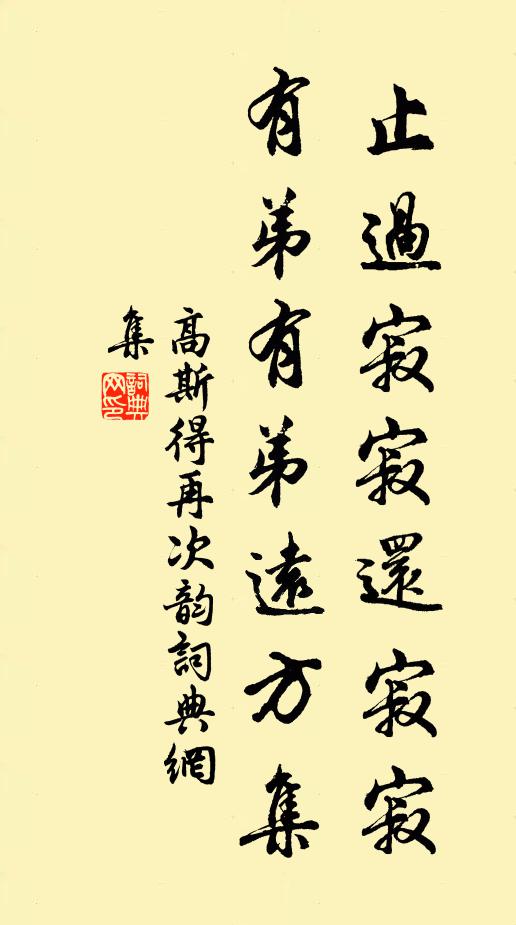 止過寂寂還寂寂
有弟有弟遠方集
高斯得再次韵詞典網
集
詞典網印